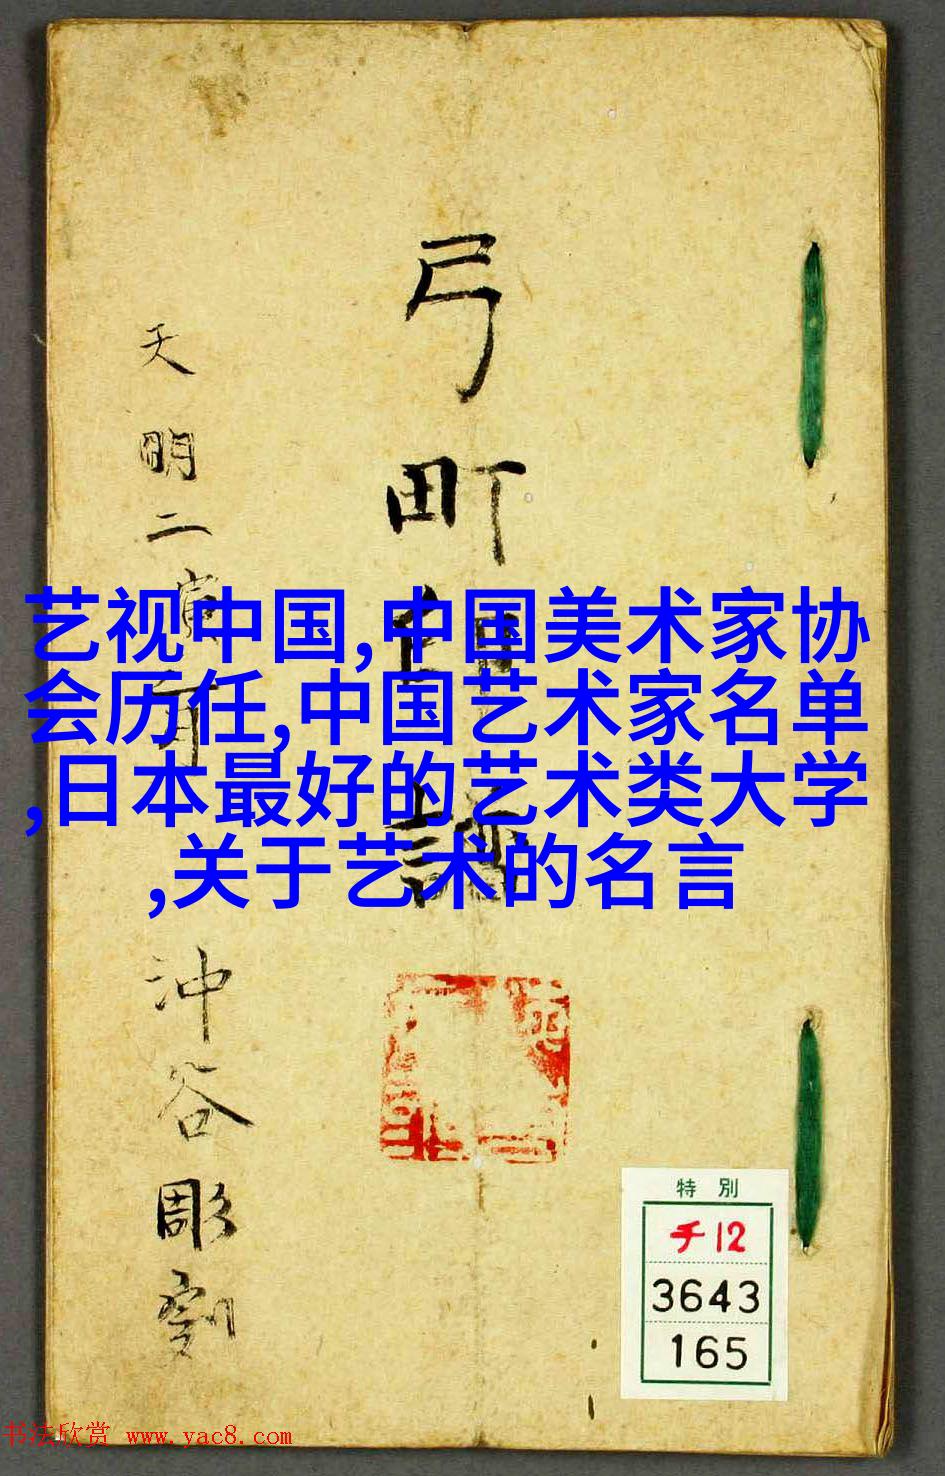 弓町
天明二寅
沖谷彫刻
艺视中国,中国美术家协
会历任,中国艺术家名单
,日本最好的艺术类大学
,关于艺术的名言
特別
チ12
3643
165
书法欣赏 www.yac8.com